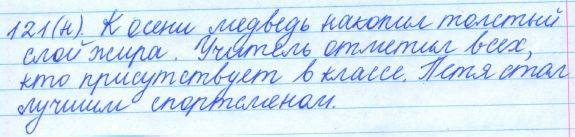 121(н). К осени медведь накопил толстый
слой жира. Учитель отметил всех,
кто присутствует в классе. Петя стал
лучшим спортсменом.